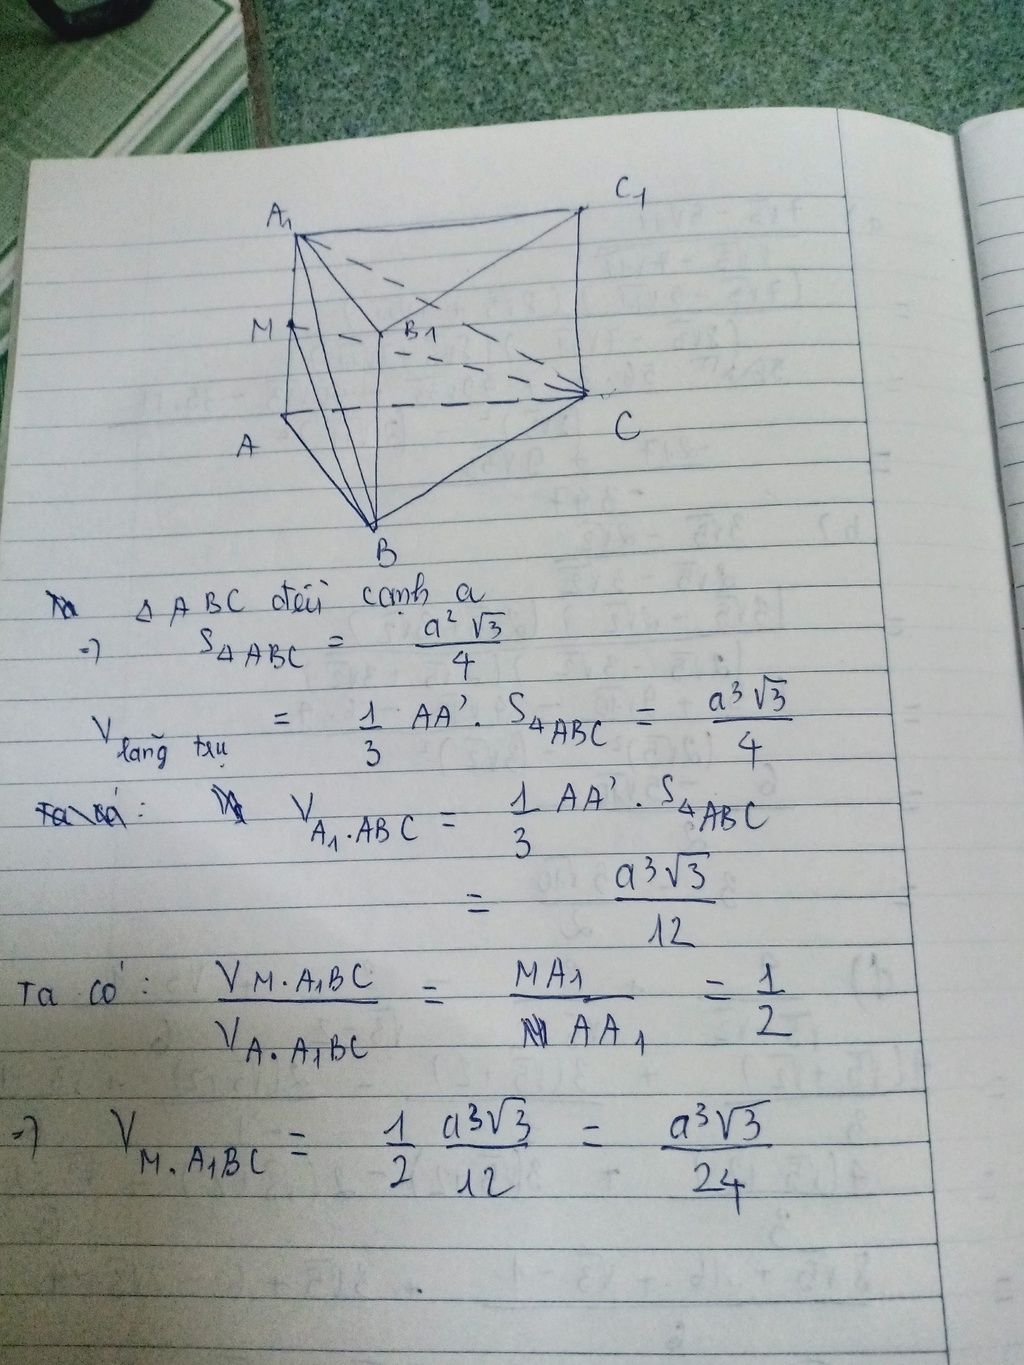 A1
C1
M
B1
A
C
B
Δ ABC đều cạnh a
=> SΔABC = a²√3/4
V lăng trụ = 1/3 AA'. SΔABC = a³√3/4
Ta có: V A1.ABC = 1/3 AA'. SΔABC
= a³√3/12
Ta có: V M.A1BC / V A.A1BC = MA1 / AA1 = 1/2
=> V M.A1BC = 1/2 a³√3/12 = a³√3/24